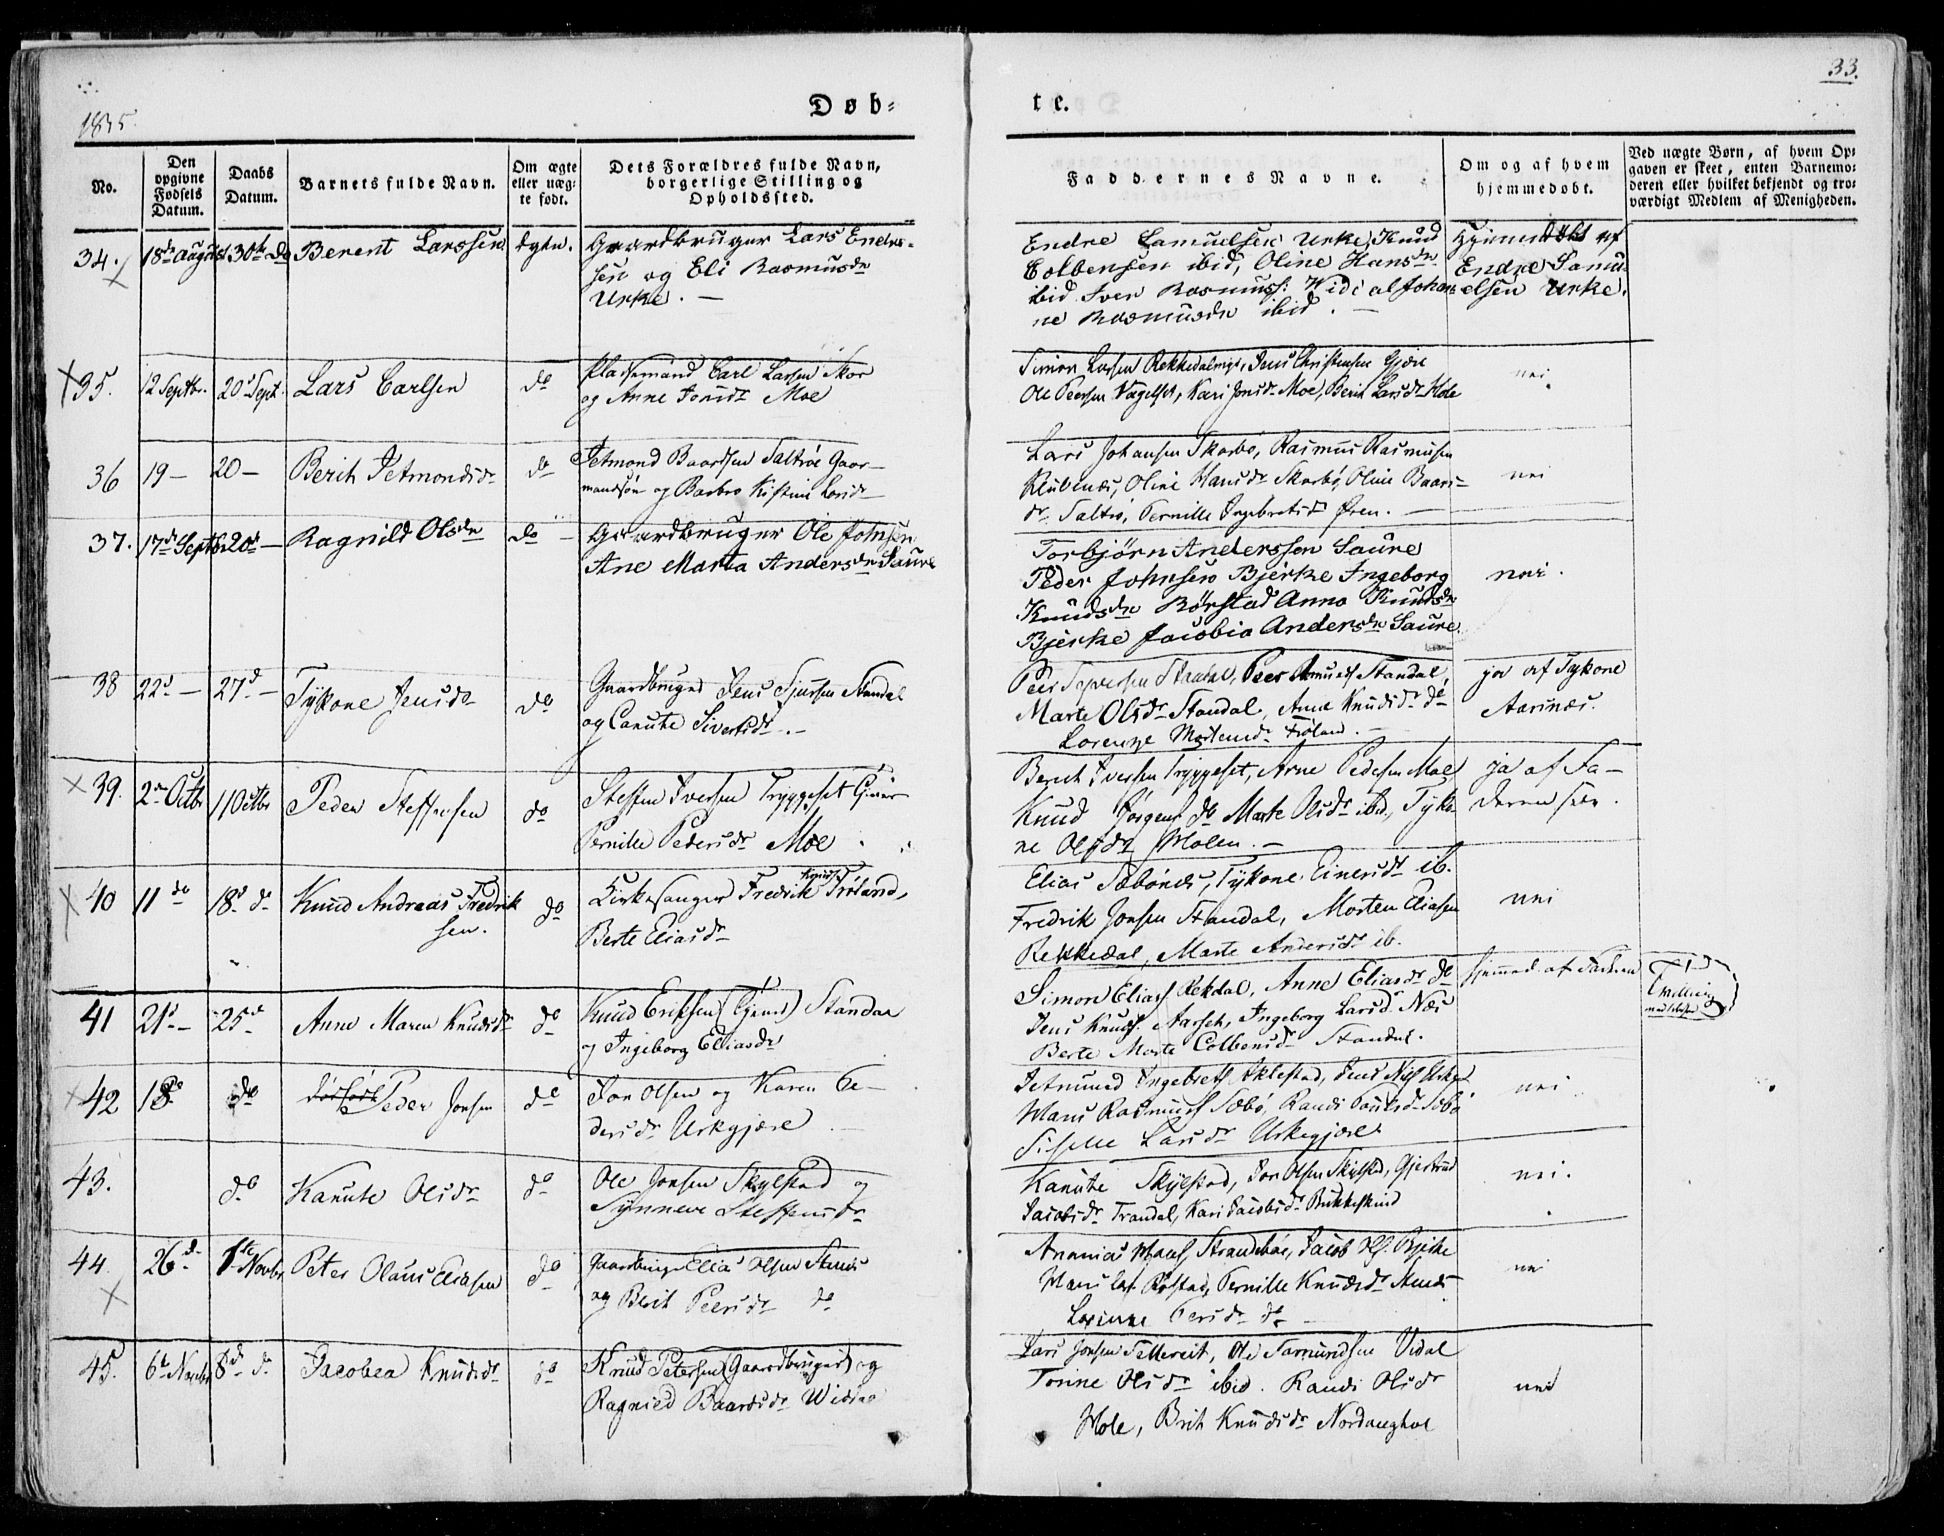 33.
1835.
Døb-
te.
No.
Den opgivne Fødsels Datum.
Daabs Datum.
Barnets fulde Navn.
Om ægte eller uæg-te født.
Dets Forældres fulde Navn, borgerlige Stilling og Opholdssted.
Faddernes Navne.
Om og af hvem hjemmedøbt.
Ved uægte Børn, af hvem Op-
gaven er skeet, enten Barnemo-
deren eller hvilket bekjendt og tro-
værdigt Medlem af Menigheden.
34. 18de August 30te do Berent Larssen ægte. Gaardbruger Lars Endre-
sen og Eli Rasmusdr
Urke. —
Endre Samuelsen Urke, Knud
Colbensen ibid, Oline Hansdr
ibid Iver Rasmuss: Widi al Johan-
ne Rasmusdr ibid. —
Hjemmedøbt af
Endre Samu-
elsen Urke.
35. 12 Septbr. 20d Sept. Lars Carlsen do Pladsemand Carl Larsen Skor
og Anne Jonsdr Moe
Simon Larsen Rekkedal, Jens Christensen Gjære
Ole Peersen Nagelset, Kari Jonsdr Moe, Berit Larsdr Hole
nei
36 19 — 20 — Berith Jetmondsdr do Jetmond Baardsen Saltrøe Gaar-
mandsøn og Barbro Kistine Larsdr
Lars Johansen Skorbø, Rasmus Rasmusen
Klubenæs, Oline Hansdr Skorbø, Oline Baars-
dr Saltrø, Pernille Ingebretsdr Øren. —
nei
37. 17de Septbr 20de — Ragnild Olsdr do — Gaardbruger Ole Johnsen
Ane Marta Andersdr Saure
Torbjørn Anderssen Saure
Peder Johnsen Bjerke Ingeborg
Knudsdr Rørstad Anna Knudsdr
Bjerke Jacobia Andersdr Saure
nei.
38 22d — 27d — Tykone Jensdr do Gaardbruger Jens Sjursen Standal
og Canute Sivertsdr. —
Peer Standal, Peer Amunds Standal,
Marte Olsdr Standal, Anne Knudsdr do
Lorenze Mortensdr Frøland. —
ja af Tykone
Aarsnæs.
39. 2den Octbr 11 Octbr Peder Steffensen do Steffen Iversen Tryggeset Gjær
Pernille Pedersdr Moe
Berent Iversen Tryggeset, Arne Pedersen Moe,
Knud Jørgens do Marte Olsdr ibid, Tyko-
ne Olsdr Molen. —
ja af Fa-
deren selv.
40 11 do 18d do Knud Andreas Fredrik
sen.
do Kirkesanger Fredrik Knuds Frøland,
Berte Eliasdr
Elias Sæbønes, Tykone Einersdr ib.
Fredrik Jonsen Standal, Morten Eliasen
Rekkedal, Marte Andersdr ib.
nei
41 21d — 25d Anne Maren Knudsdr do Knud Eriksen (Gjær) Standal
og Ingeborg Eliasdr
Simon Eliass Rekdal, Anne Eliasdr do
Jens Knuds. Aarseth, Ingeborg Larsd. Næs
Berte Marte Colbensdr Standal.
hjemmed. af Faderen
42 18 do Peder Jonsen do Jon Olsen og Karen Pe-
dersdr Urkgjære
Jetmund Ingebrets Aklestad, Jens Niels Urke
Hans Rasmuss Sæbø, Randi Poulsdr Sæbø
Sissele Larsdr Urkegjære.
nei
43. do Kanute Olsdr do Ole Jonsen Skylstad og
Synneve Steffensdr
Kanute Skylstad, Jon Olsen Skylstad, Gjertrud
Jacobsdr Trandal, Kari Jacobsdr Brekkeskind
nei.
44 26d 1ste Novbr Peter Olaus Eliasen do Gaardbruger Elias Olsen
og Berit Peersdr do
Ananias Hans Strandabøe, Jacob Ols. Bjerke
Hans Rørstad, Pernille Knudsdr
Lovinne Persdr do —
nei
45. 6te Novbr 8d do Jacobea Knudsdr do Knud Petersen (Gaardbruger) og
Ragnild Baardsdr Widdal
Lars Jonsen Fetterreit, Ole Samundsen Vidal
Tonne Olsdr ibid. Randi Olsdr
Hole, Brit Knudsdr Nordanghol
nei